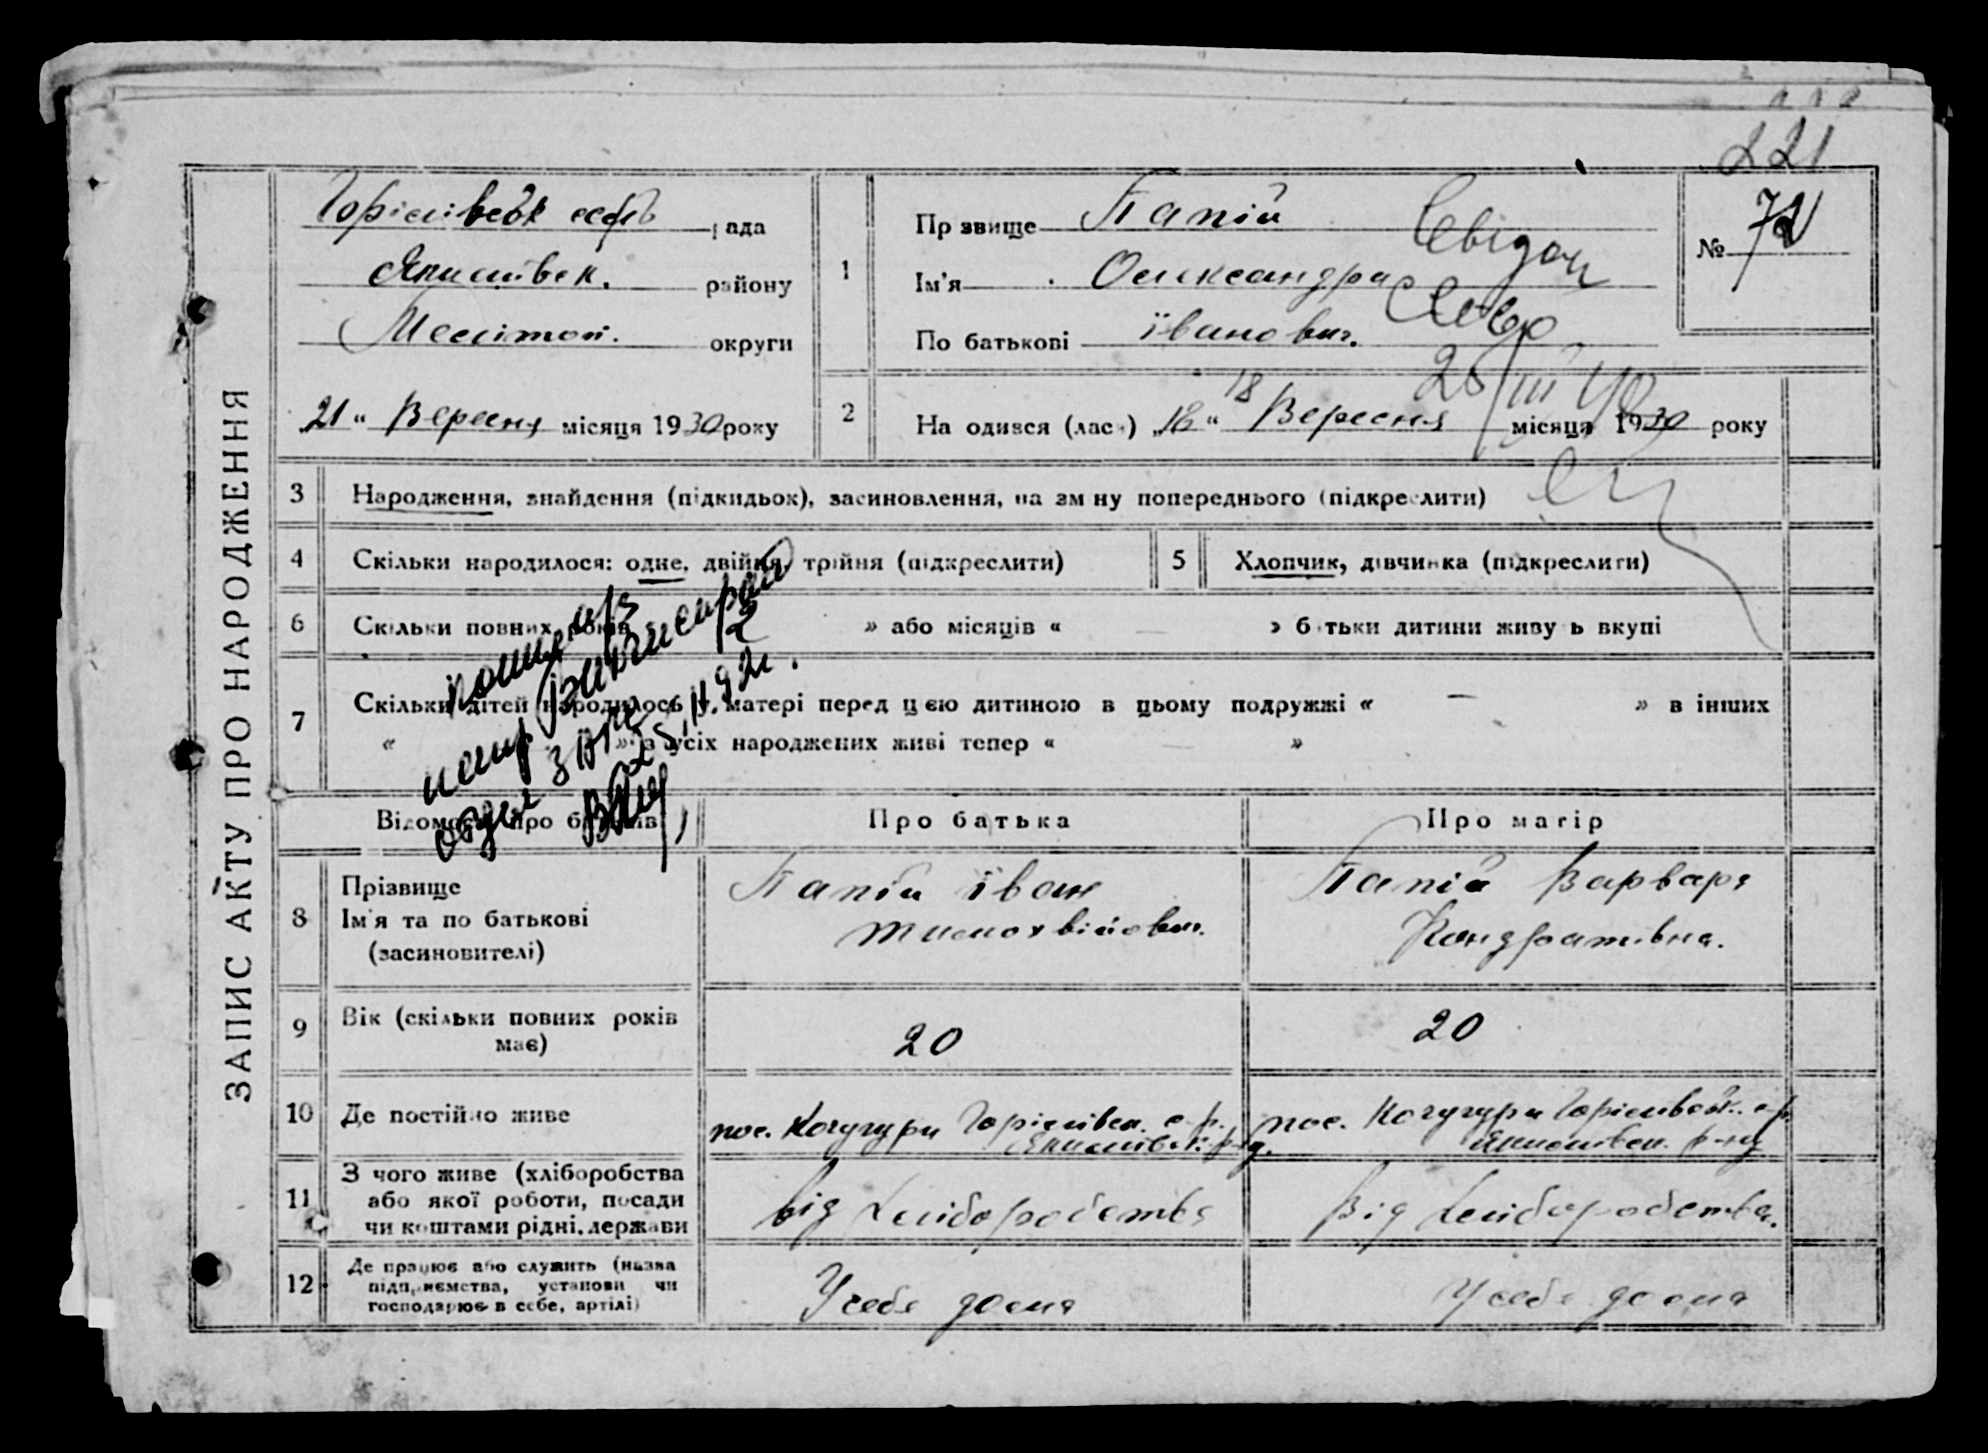 221
ЗАПИС АКТУ ПРО НАРОДЖЕННЯ
рада
району
Мелітоп. округи
21 " Вересня місяця 1930 року
1
Прзвище Папій
Ім'я Олександра
По батькові Іванович.
№ 72
2
18
На одився (лас ) 18 " Вересня місяця 1930 року
3 Народження, знайдення (підкидьок), засиновлення, на зм ну попереднього (підкреслити)
4 Скільки народилося: одне, двійня, трійня (підкреслити)
5 Хлопчик, дівчинка (підкреслити)
6 Скільки повних років » або місяців « — » б тьки дитини живу ь вкупі
7 Скільки дітей народилось у матері перед цією дитиною в цьому подружжі « — » в інших
« » з усіх народжених живі тепер « — »
Відомості про батьків Про батька Про матір
8 Прізвище
Ім'я та по батькові
(засиновителі)
Папій Іван
Тимохвійович.
Папій Варвара
Кондратівна.
9 Вік (скільки повних років
має)
20
20
10 Де постійно живе
пос. Кочугури
пос. Кочугури
11 З чого живе (хліборобства
або якої роботи, посади
чи коштами рідні, держави
від хліборобства
від хліборобства.
12 Де працює або служить (назва
підприємства, установи чи
господарює в себе, артілі)
У себе дома
У себе дома